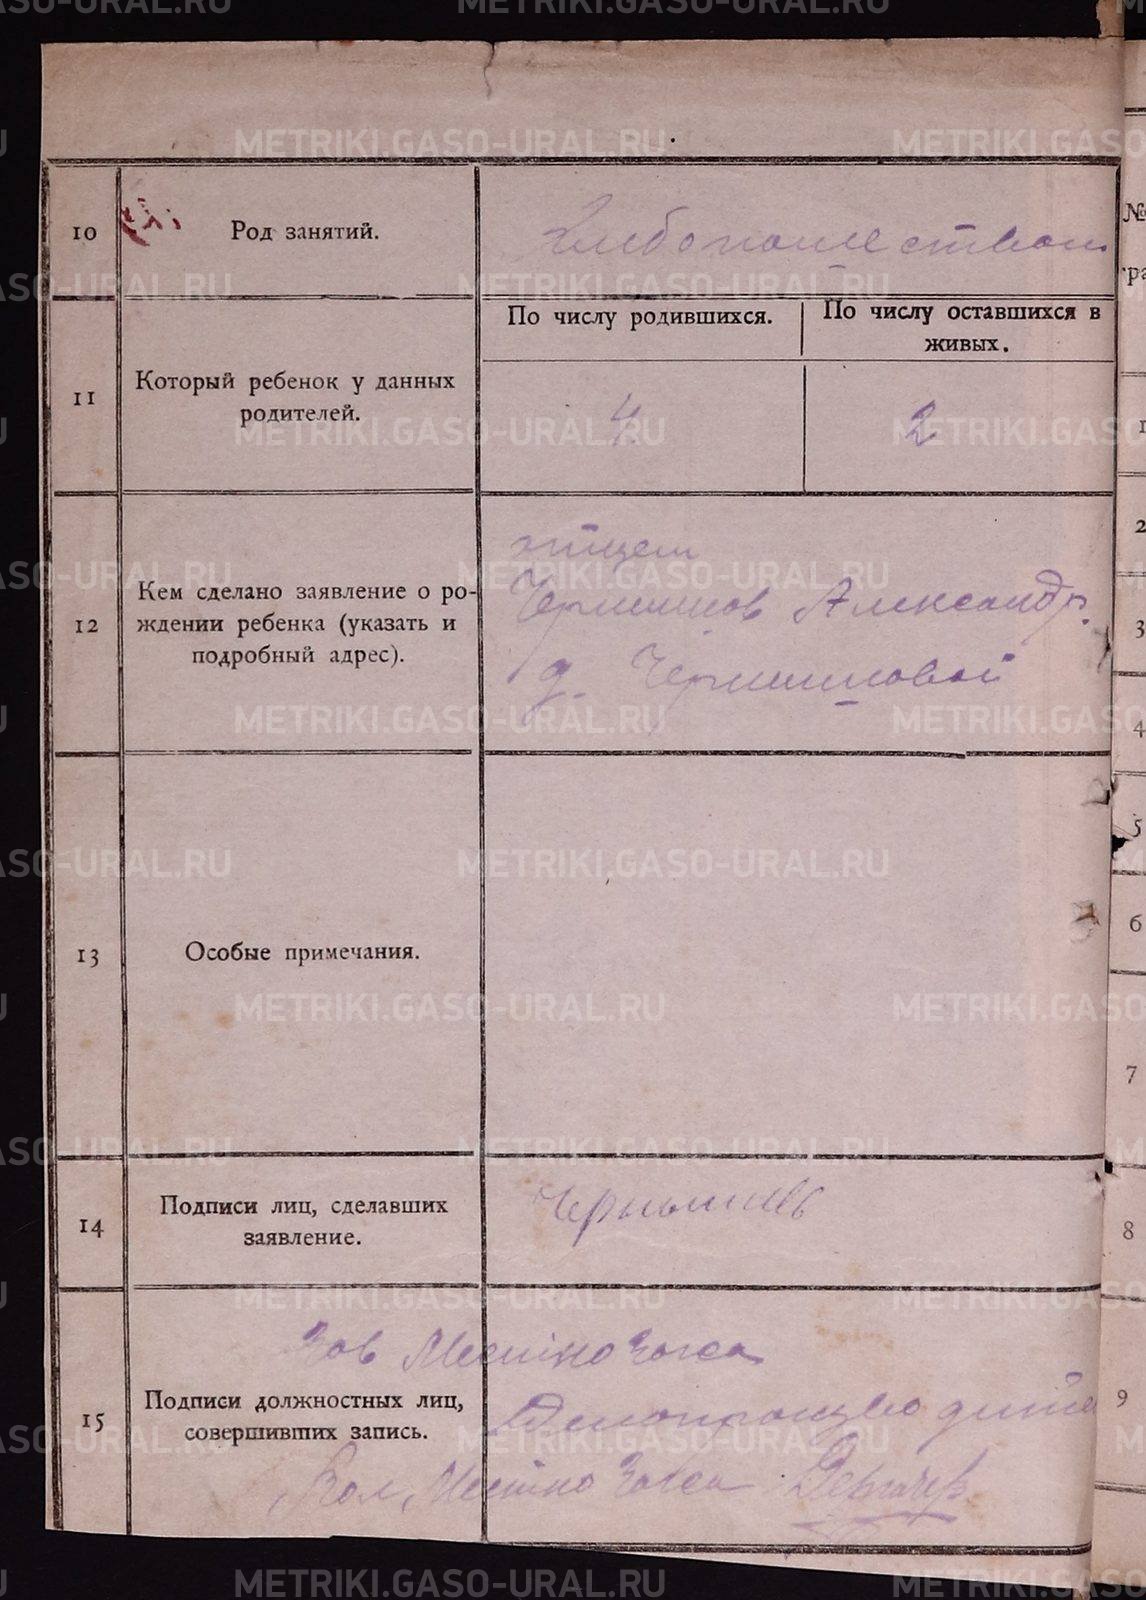 METRIKI.GASO-URAL.RU
10
Род занятий.
Хлебопашеством
11
Который ребенок у данных
родителей.
По числу родившихся.
По числу оставшихся в
живых.
4
2
12
Кем сделано заявление о ро-
ждении ребенка (указать и
подробный адрес).
отцем
Александр.
д.
13
Особые примечания.
14
Подписи лиц, сделавших
заявление.
Чернышев
Зав
15
Подписи должностных лиц,
совершивших запись.
Делопроизводитель
№
2
3
4
5
6
7
8
9